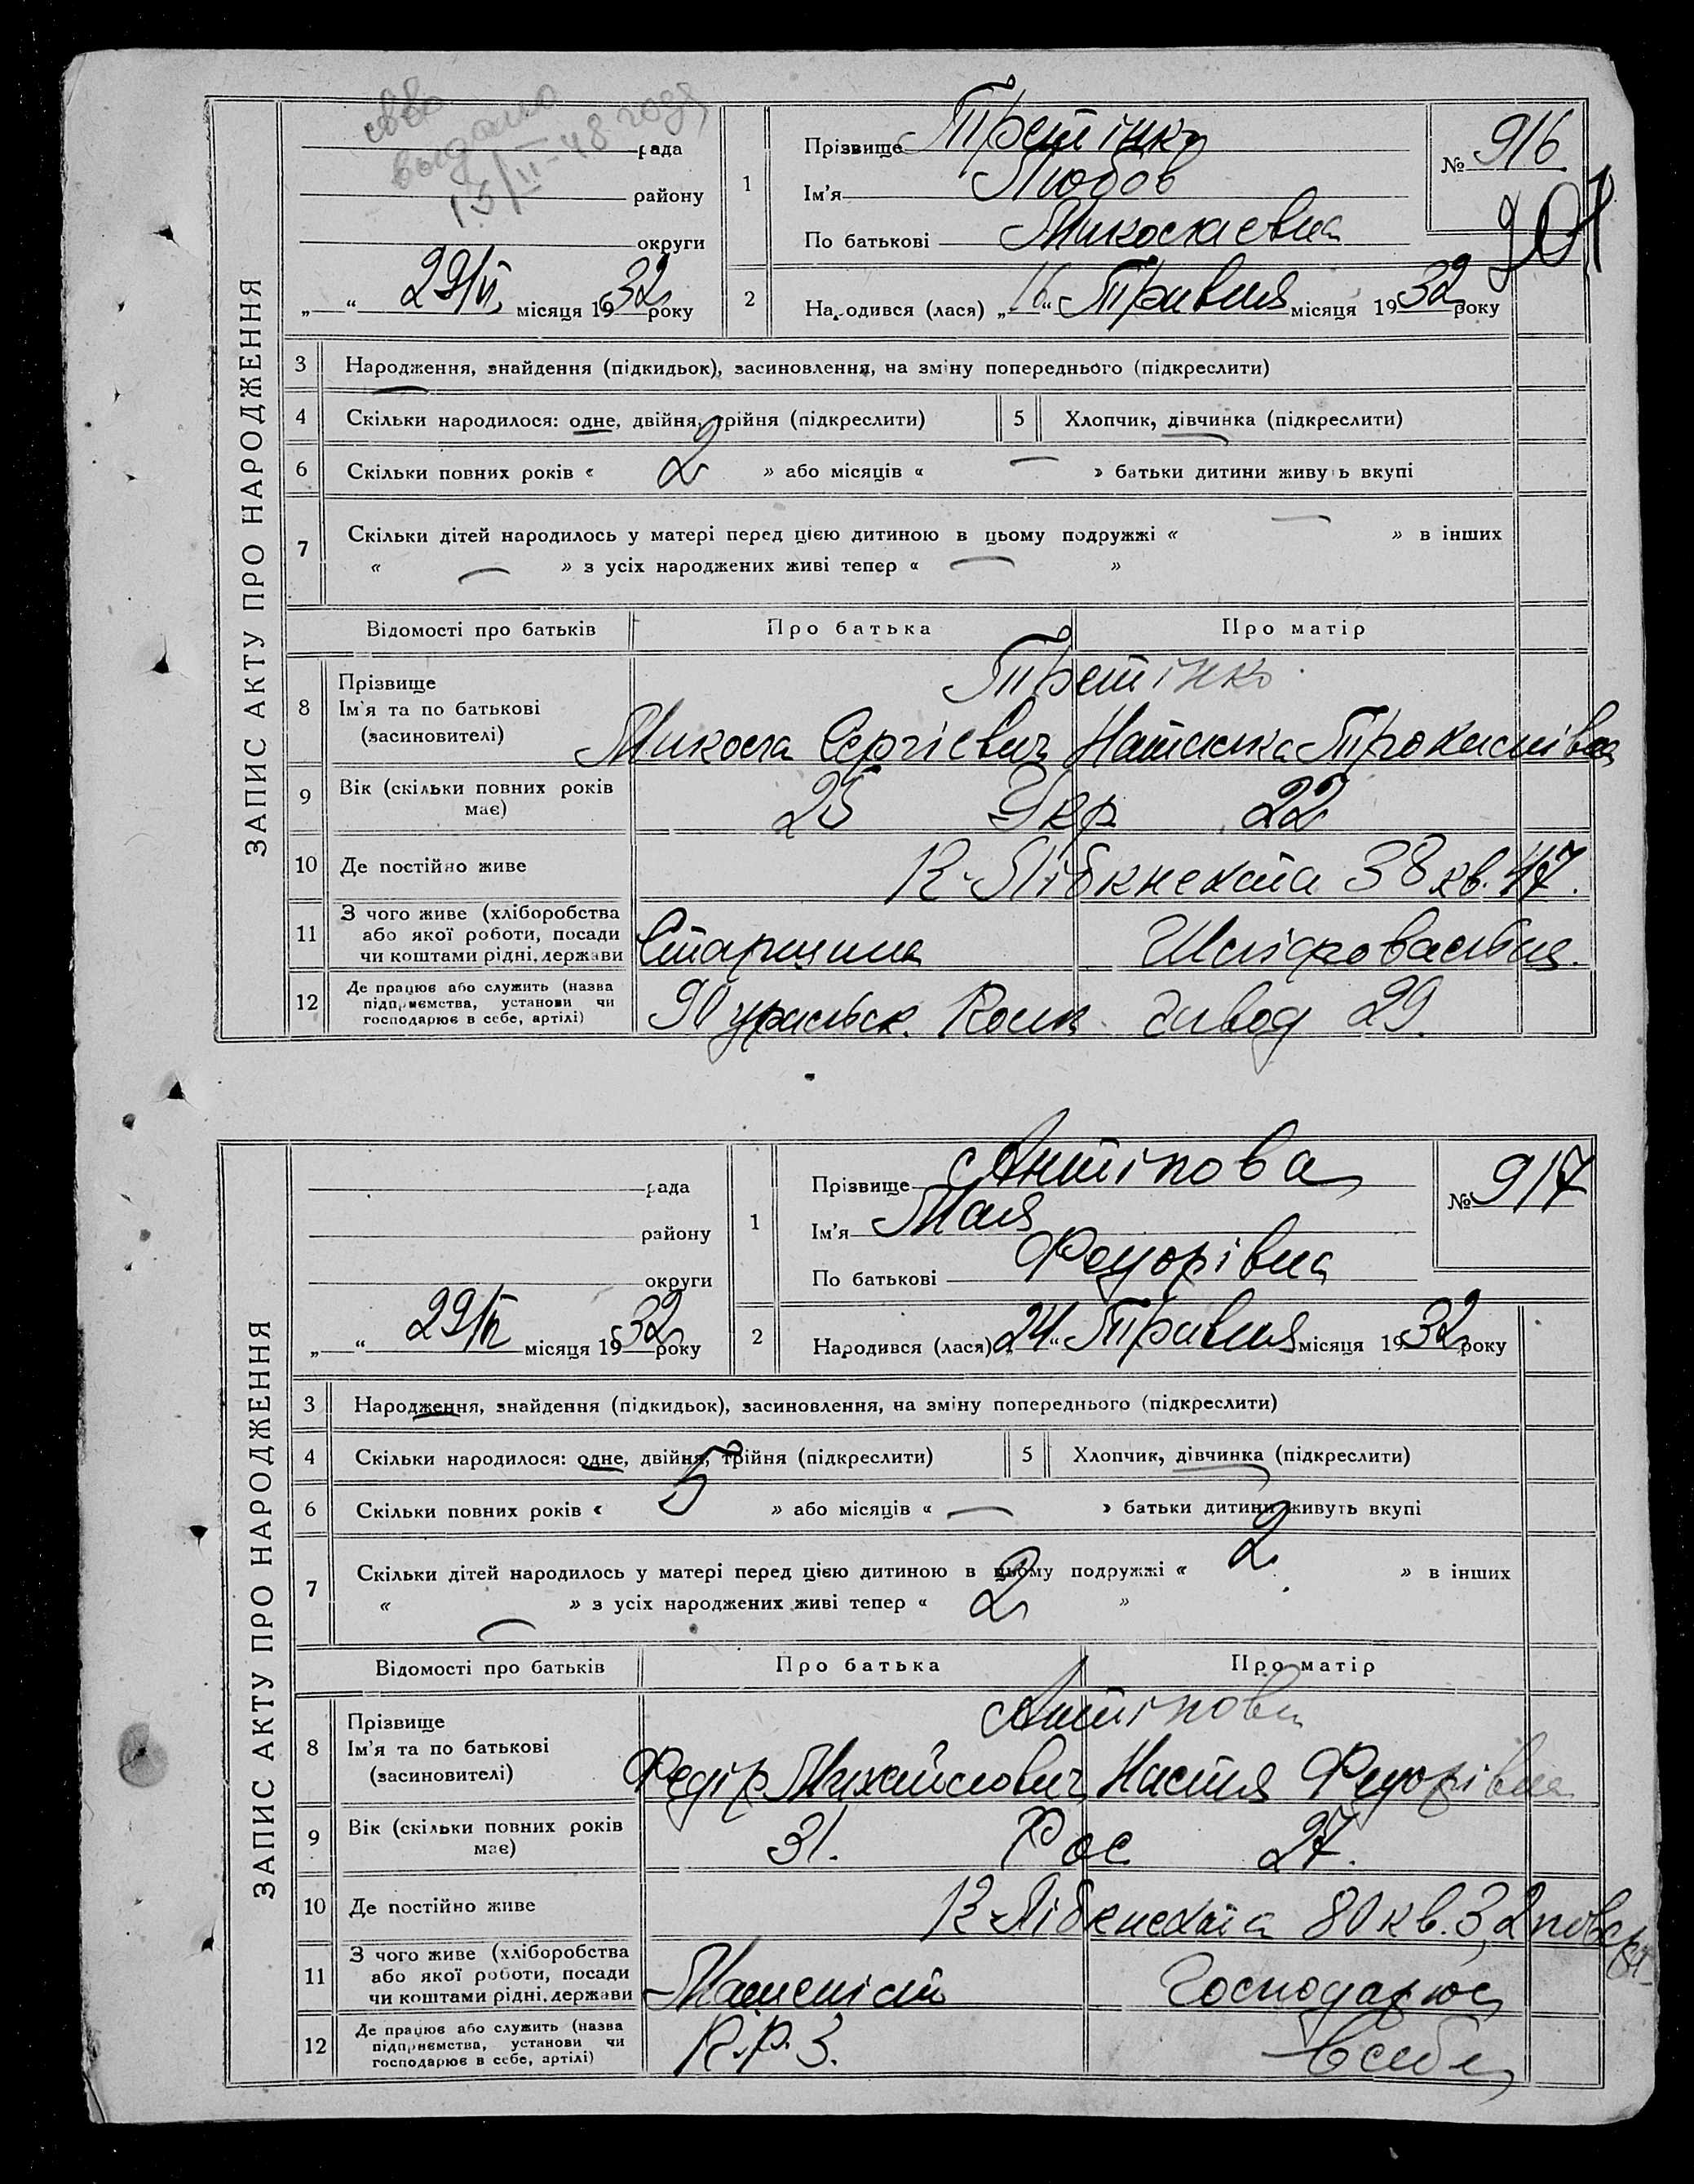 ЗАПИС АКТУ ПРО НАРОДЖЕННЯ
выдано
13/II-48 года
рада
району
округи
„ “ 29/V місяця 1932 року
1
Прізвище Третінко
Ім'я Любов
По батькові Миколаевна
№ 916
901
2
Народився (лася) „16“ Травня місяця 1932 року
3 Народження, знайдення (підкидьок), засиновлення, на зміну попереднього (підкреслити)
4 Скільки народилося: одне, двійня, трійня (підкреслити) 5 Хлопчик, дівчинка (підкреслити)
6 Скільки повних років « 2 » або місяців « — » батьки дитини живуть вкупі
7 Скільки дітей народилось у матері перед цією дитиною в цьому подружжі « — » в інших
« — » з усіх народжених живі тепер « — »
Відомості про батьків Про батька Про матір
8 Прізвище
Ім'я та по батькові
(засиновителі)
Третінко
Микола Сергієвич Наталка Прокопівна
9 Вік (скільки повних років має) 25 Укр 22
10 Де постійно живе К-Лібкнехта 38 кв. 47.
11 З чого живе (хліборобства або якої роботи, посади чи коштами рідні, держави Старшина Шліфовальня.
12 Де працює або служить (назва підприємства, установи чи господарює в себе, артілі) 90 уральск. Полк завод 29.
ЗАПИС АКТУ ПРО НАРОДЖЕННЯ
рада
району
округи
„ “ 29/V місяця 1932 року
1
Прізвище Антіпова
Ім'я Мая
По батькові Федорівна
№ 917
2
Народився (лася) „24“ Травня місяця 1932 року
3 Народження, знайдення (підкидьок), засиновлення, на зміну попереднього (підкреслити)
4 Скільки народилося: одне, двійня, трійня (підкреслити) 5 Хлопчик, дівчинка (підкреслити)
6 Скільки повних років « 5 » або місяців « — » батьки дитини живуть вкупі
7 Скільки дітей народилось у матері перед цією дитиною в цьому подружжі « 2 » в інших
« — » з усіх народжених живі тепер « 2 »
Відомості про батьків Про батька Про матір
8 Прізвище
Ім'я та по батькові
(засиновителі)
Антіпови
Федір Михайлович Настя Федорівна
9 Вік (скільки повних років має) 31. Рос 27.
10 Де постійно живе К-Лібкнехта 80 кв. 3, 2 поверх
11 З чого живе (хліборобства або якої роботи, посади чи коштами рідні, держави Машеніст Господарює
12 Де працює або служить (назва підприємства, установи чи господарює в себе, артілі) К.Р.З. в себе